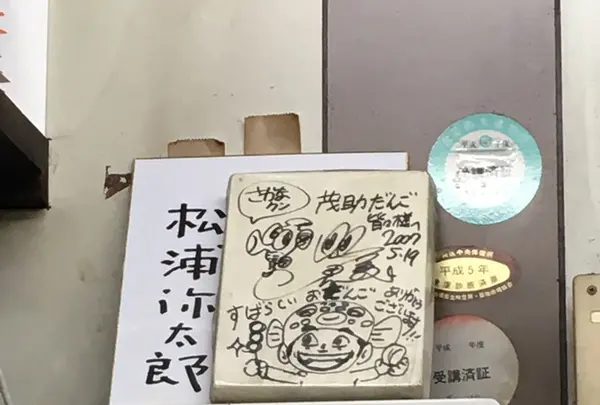 松浦弥太郎
さかなクン
茂助だんご
皆々様へ
2007
5.19
すばらしいおだんごありがとうございます!!
平成 年度
平成5年
平成 年度
受講済証